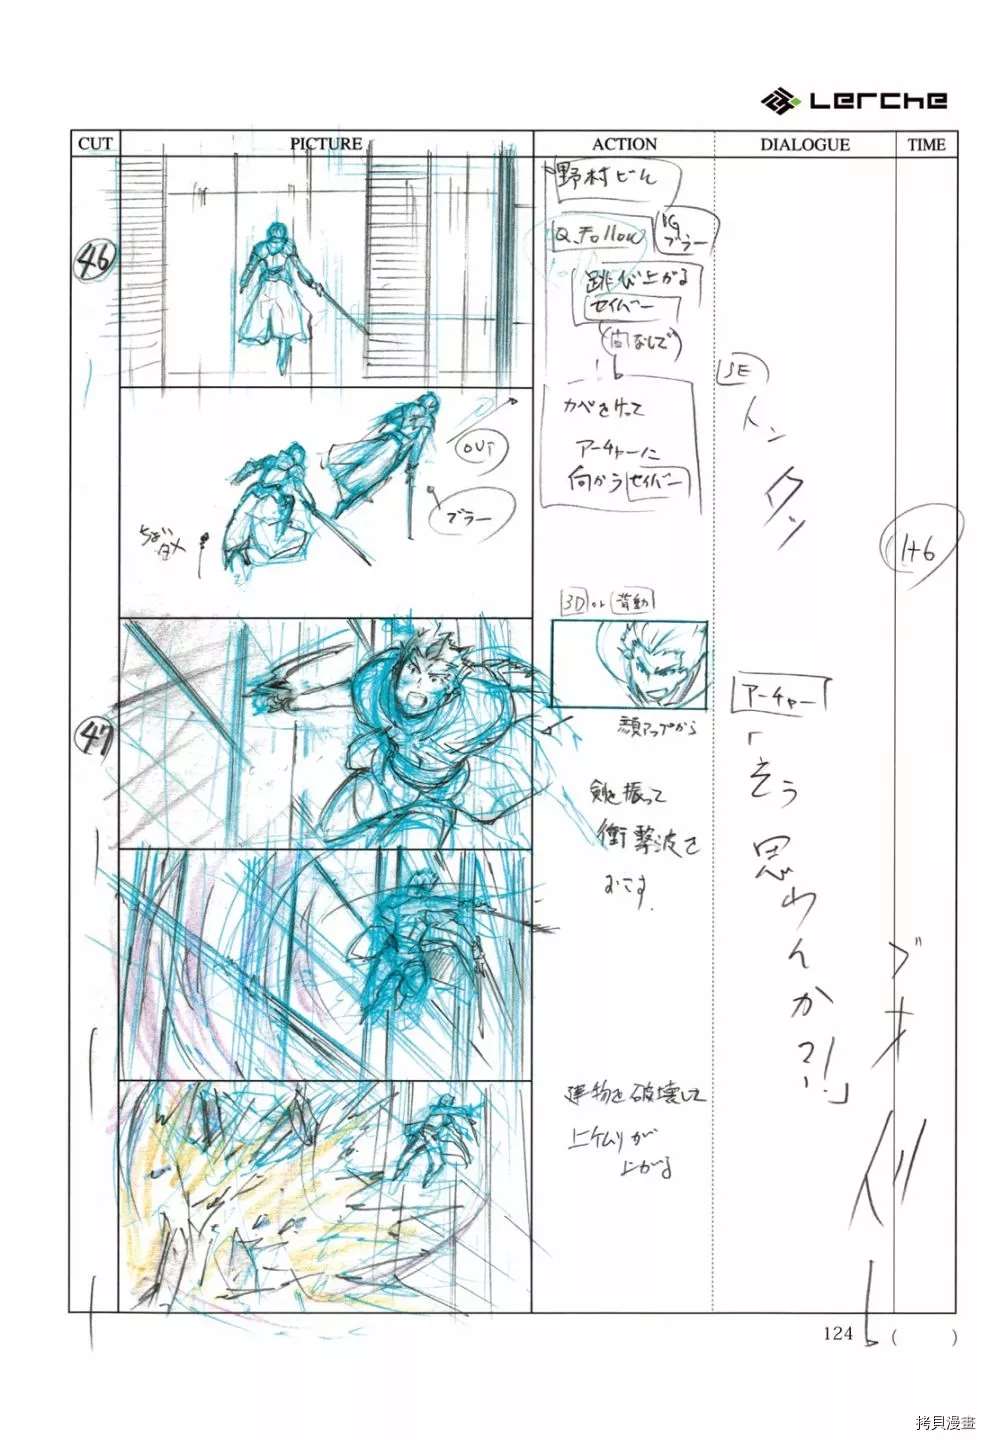 Lerche
CUT PICTURE ACTION DIALOGUE TIME
46
野村ビル
Q.Follow
BG
ブラー
跳び上がる
セイバー
(間なしで)
カベをけって
アーチャーに
向かうセイバー
SE
トン
タッ
OUT
ブラー
1+6
47
3D or 背動
顔アップから
剣を振って
衝撃波を
おこす.
アーチャー
「そう思わんか?!」
建物を破壊して
土ケムリが
上がる
124 ( )
拷貝漫畫